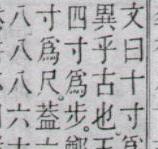 文曰十寸爲
異乎古也
四寸爲步
寸爲尺。蓋
八八八六